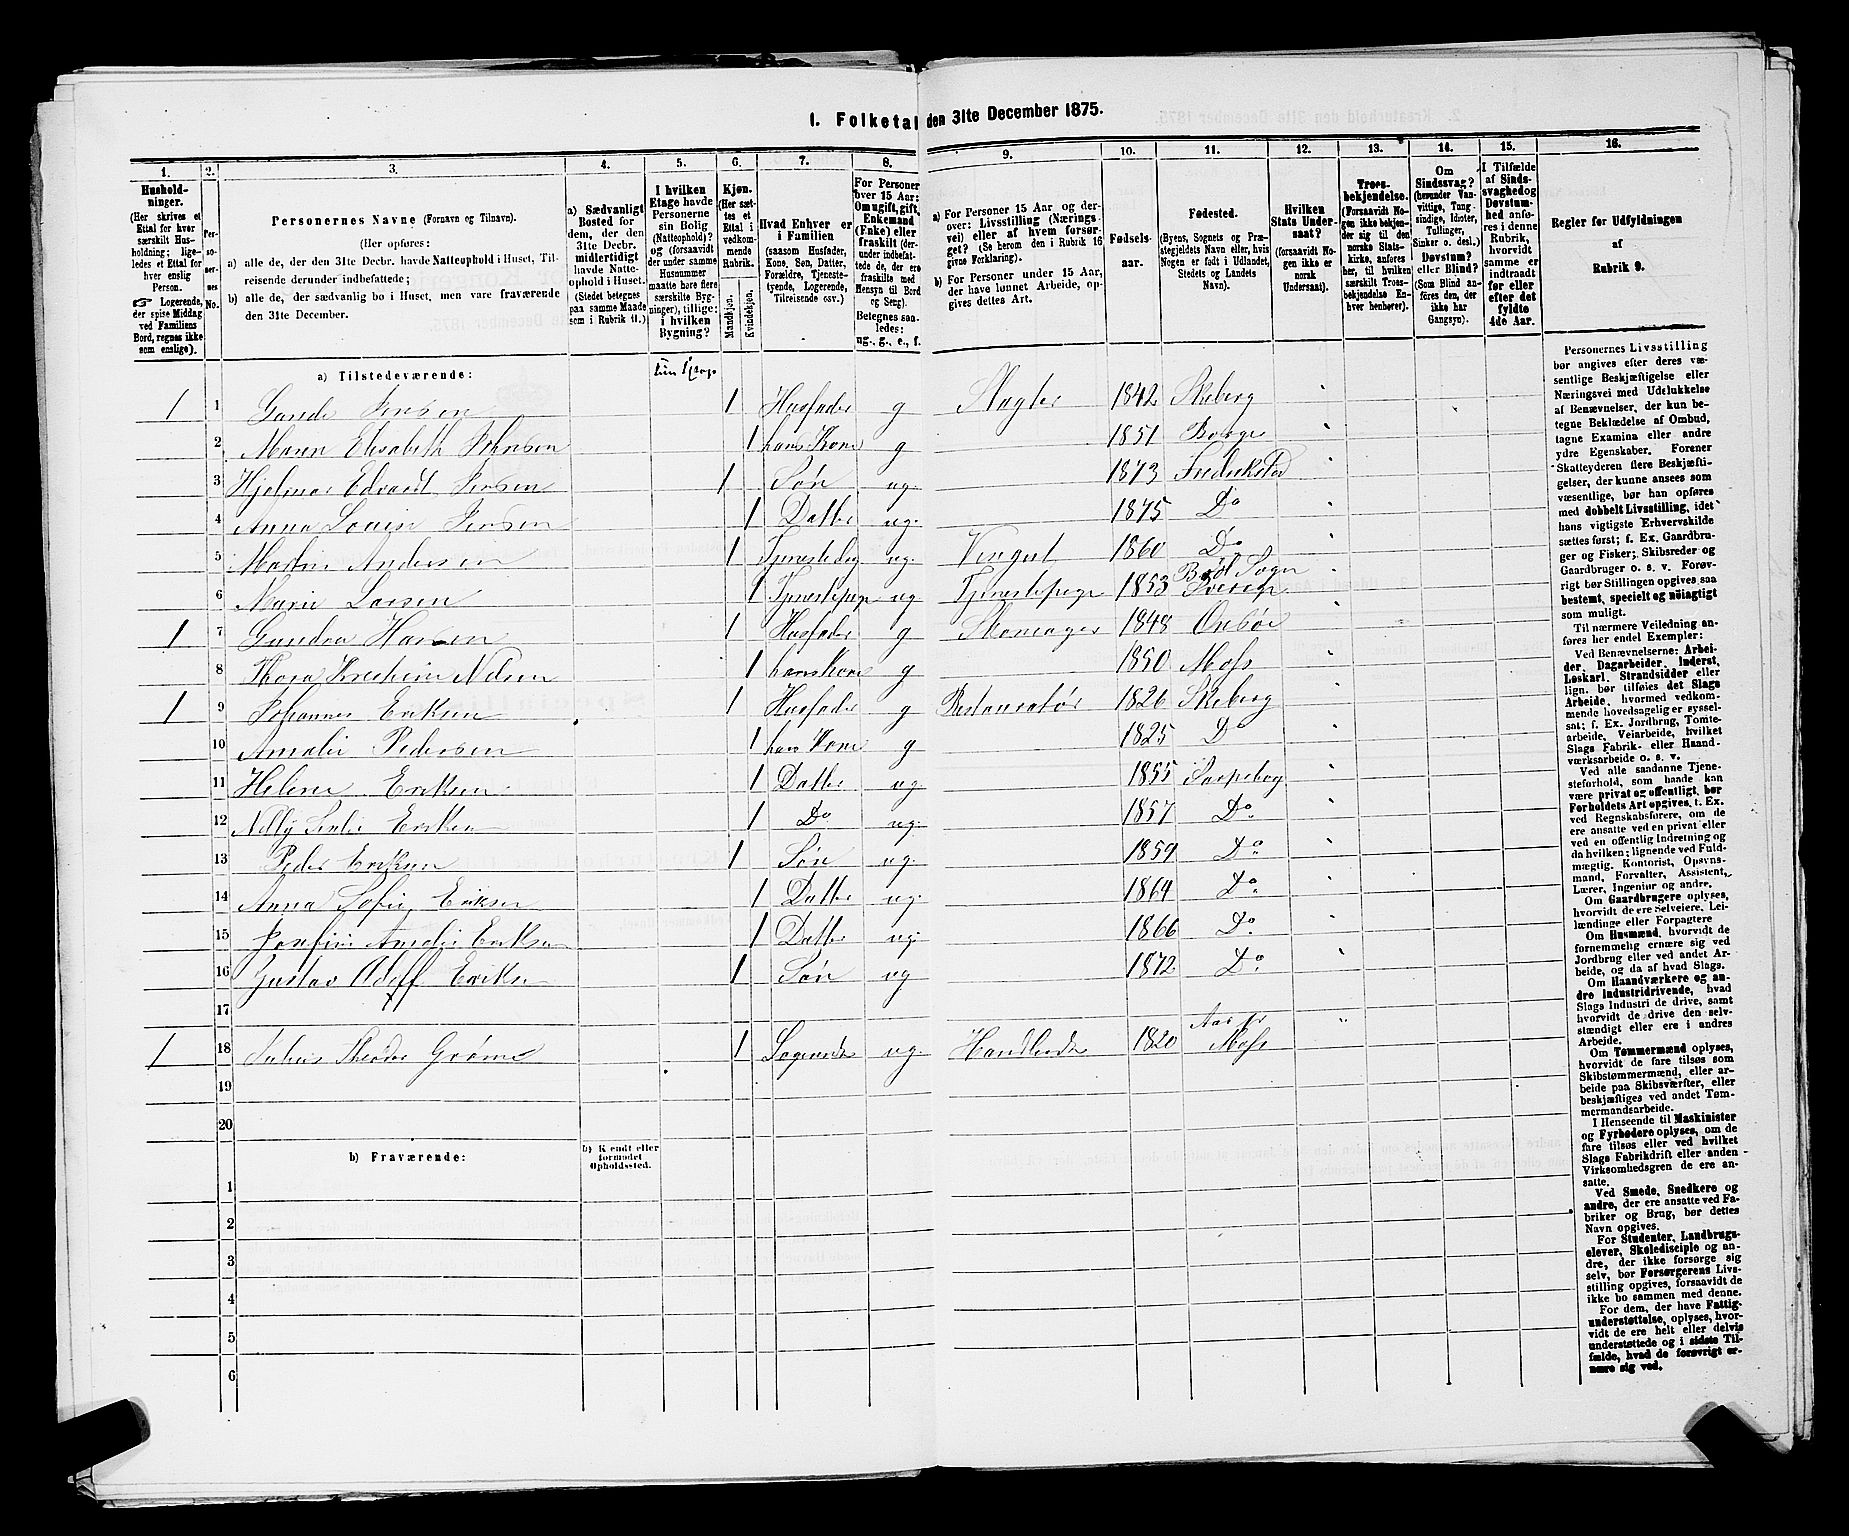 1. Folketal den 31te December 1875.
1. 2. 3. 4. 5. 6. 7. 8. 9. 10. 11. 12. 13. 14. 15. 16.
Husholdninger.
(Her skrives et
Ettal for hver
særskilt Husholdning;
ligeledes et Ettal for
hver enslig
Person.
☞ Logerende,
der spise Middag
ved Familiens
Bord, regnes ikke
som enslige).
Personernes No.
Personernes Navne (Fornavn og Tilnavn).
(Her opføres:
a) alle de, der den 31te Decbr. havde Natteophold i Huset, Tilreisende derunder indbefattede;
b) alle de, der sædvanlig bo i Huset, men vare fraværende
den 31te December.
a) Sædvanligt
Bosted for
dem, der den
31te Decbr.
midlertidigt
havde Natteophold i Huset.
(Stedet betegnes
paa samme Maade
som i Rubrik 11.)
I hvilken
Etage havde
Personerne
sin Bolig
(Natteophold)?
og (forsaavidt
der under samme
Husnummer
maatte høre flere
særskilte Bygninger), tillige:
i hvilken
Bygning?
Kjøn.
(Her sættes et
Ettal i
vedkommende
Rubrik.
Mandkjøn.
Kvindekjøn.
Hvad Enhver er
i Familien
(saasom Husfader,
Kone, Søn, Datter,
Forældre, Tjenestetyende, Logerende,
Tilreisende osv.)
For Personer
over 15 Aar:
Om ugift, gift,
Enkemand
(Enke) eller
fraskilt (derunder indbefattede de, der
ere fraskilte med
Hensyn til Bord
og Seng).
Betegnes saaledes:
ug., g., e., f.
a) For Personer 15 Aar og derover: Livsstilling (Næringsvei) eller af hvem forsørget? (Se herom den i Rubrik 16
givne Forklaring).
b) For Personer under 15 Aar,
der have lønnet Arbeide, opgives dettes Art.
Fødselsaar.
Fødested.
(Byens, Sognets og Præstegjeldets Navn eller, hvis
Nogen er født i Udlandet,
Stedets og Landets
Navn).
Hvilken
Stats Undersaat?
(forsaavidt Nogen ikke er
norsk
Undersaat).
Troesbekjendelse.
(Forsaavidt Nogen ikke bekjender sig til den
norske Statskirke, anføres
her, til hvilken
særskilt Troesbekjendelse Enhver henhører).
Om
Sindssvag?
(herunder Vanvittige, Tungsindige, Idioter,
Tullinger,
Sinker o. desl.)
Døvstum?
eller Blind?
(Som Blind anføres den, der
ikke har
Gangsyn).
I Tilfælde
af Sindssvaghed og
Døvstumhed anføres i denne
Rubrik,
hvorvidt
samme er
indtraadt
før eller
efter det
fyldte
4de Aar.
Regler for Udfyldningen
af
Rubrik 9.
a) Tilstedeværende:
1 1 Gunde Jensen 1 Husfader g Slagter 1842 Skeberg
2 Maren Elisabeth Johnsen 1 hans Kone g 1851 Borge
3 Hjalmar Edvardt Jensen 1 Søn ug. 1873 Frederikstad
4 Anna Lovise Jensen 1 Datter ug. 1875 Do
5 Andersen 1 ug. 1860 Do
6 Marie Larsen 1 Tjenestepige ug Tjenestepige 1853 Sogn Sverige
1 7 Hansen 1 Husfader g Skomager 1848 Onsø
8 Thora Kristine Nilsen 1 hans Kone g 1850 Moss
1 9 Johannes Eriksen 1 Husfader g Restauratør 1826 Skeberg
10 Amalie Pedersen 1 hans Kone g 1825 Do
11 Helene Eriksen 1 Datter ug. 1855 Sarpsborg
12 Nelly Eriksen 1 Do ug. 1857 Do.
13 Peder Eriksen 1 Søn ug. 1859 Do.
14 Anna Sofie Eriksen 1 Datter ug. 1864 Do.
15 Josefine Amalie Eriksen 1 Datter ug. 1866 Do.
16 Gustav Adolf Eriksen 1 Søn ug 1872 Do.
17
1 18 Julius Theodor 1 Logerende ug. 1820 Moss
19
20
b) Fraværende:
b) Kendt eller
formodet
Opholdssted.
1
2
3
4
5
6
Personernes Livsstilling
bør angives efter deres væsentlige Beskjæftigelse eller
Næringsvei med Udelukkelse
af Benævnelser, der kun betegne Beklædelse af Ombud,
tagne Examina eller andre
ydre Egenskaber. Forener
Skatteyderen flere Beskjæftigelser, der kunne ansees som
væsentlige, bør han opføres
med dobbelt Livsstilling, idet
hans vigtigste Erhvervskilde
sættes først; f. Ex. Gaardbruger og Fisker; Skibsreder og
Gaardbruger o. s. v. Forøvrigt bør Stillingen opgives saa
bestemt, specielt og nøiagtigt
som muligt.
Til nærmere Veiledning anføres her endel Exempler:
Ved Benævnelserne: Arbeider, Dagarbeider, Inderst,
Løskarl, Strandsidder eller
lign. bør tilføies det Slags
Arbeide, hvormed vedkommende hovedsagelig er sysselsat; f. Ex. Jordbrug, Tomtearbeide, Veiarbeide, hvilket
Slags Fabrik- eller Haandværksarbeide o. s. v.
Ved alle saadanne Tjenesteforhold, som baade kan
være privat og offentligt, bør
Forholdets Art opgives, t. Ex.
ved Regnskabsførere, om de
ere ansatte ved en privat eller
ved en offentlig Indretning og
da hvilken; lignende ved Fuldmægtig, Kontorist, Opsynsmand, Forvalter, Assistent,
Lærer, Ingeniør og andre.
Om Gaardbrugere oplyses,
hvorvidt de ere Selveiere, Leilændinge eller Forpagtere.
Om Husmænd, hvorvidt de
fornemmelig ernære sig ved
Jordbrug eller ved andet Arbeide, og da af hvad Slags.
Om Haandværkere og andre Industridrivende, hvad
Slags Industri de drive, samt
hvorvidt de drive den selvstændigt eller ere i andres
Arbeide.
Om Tømmermænd oplyses,
hvorvidt de fare tilsøs som
Skibstømmermænd, eller arbeide paa Skibsværfter, eller
beskjæftiges ved andet Tømmermandsarbeide.
I Henseende til Maskinister
og Fyrbødere oplyses, om de
fare tilsøs eller ved hvilket
Slags Fabrikdrift eller anden
Virksomhedsgren de ere ansatte.
Ved Smede, Snedkere og
andre, der ere ansatte ved Fabriker og Brug, bør dettes
Navn opgives.
For Studenter, Landbrugselever, Skoledisciple og andre, der ikke forsørge sig
selv, bør Forsørgerens Livsstilling opgives, forsaavidt de
ikke bo sammen med denne.
For dem, der have Fattigunderstøttelse, oplyses, hvorvidt de ere helt eller delvis
understøttede og i sidste Tilfælde, hvad de forøvrigt ernære sig ved.